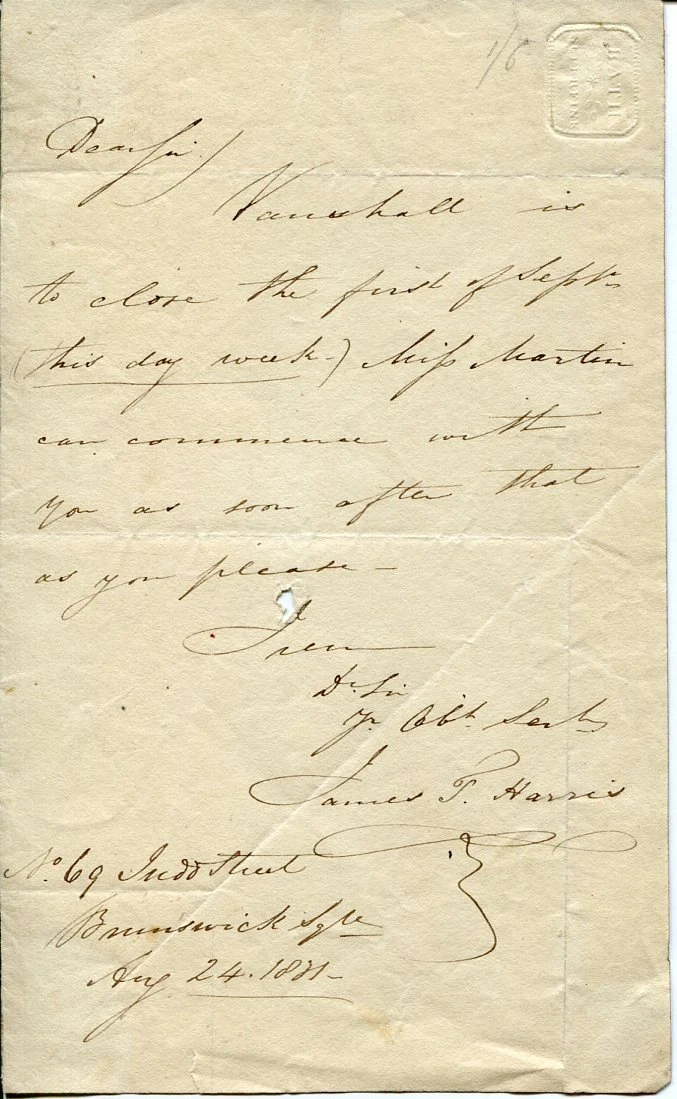 1/6
BATH
Dear Sir)
Vauxhall is
to close the first of Septr
(this day week-) Miss Martin
can commence with
you as soon after that
as you please-
I am
Dr Sir
Yr Obt Servt
James T. Harris
No. 69 Judd Street
Brunswick Sqre
Aug 24. 1831-